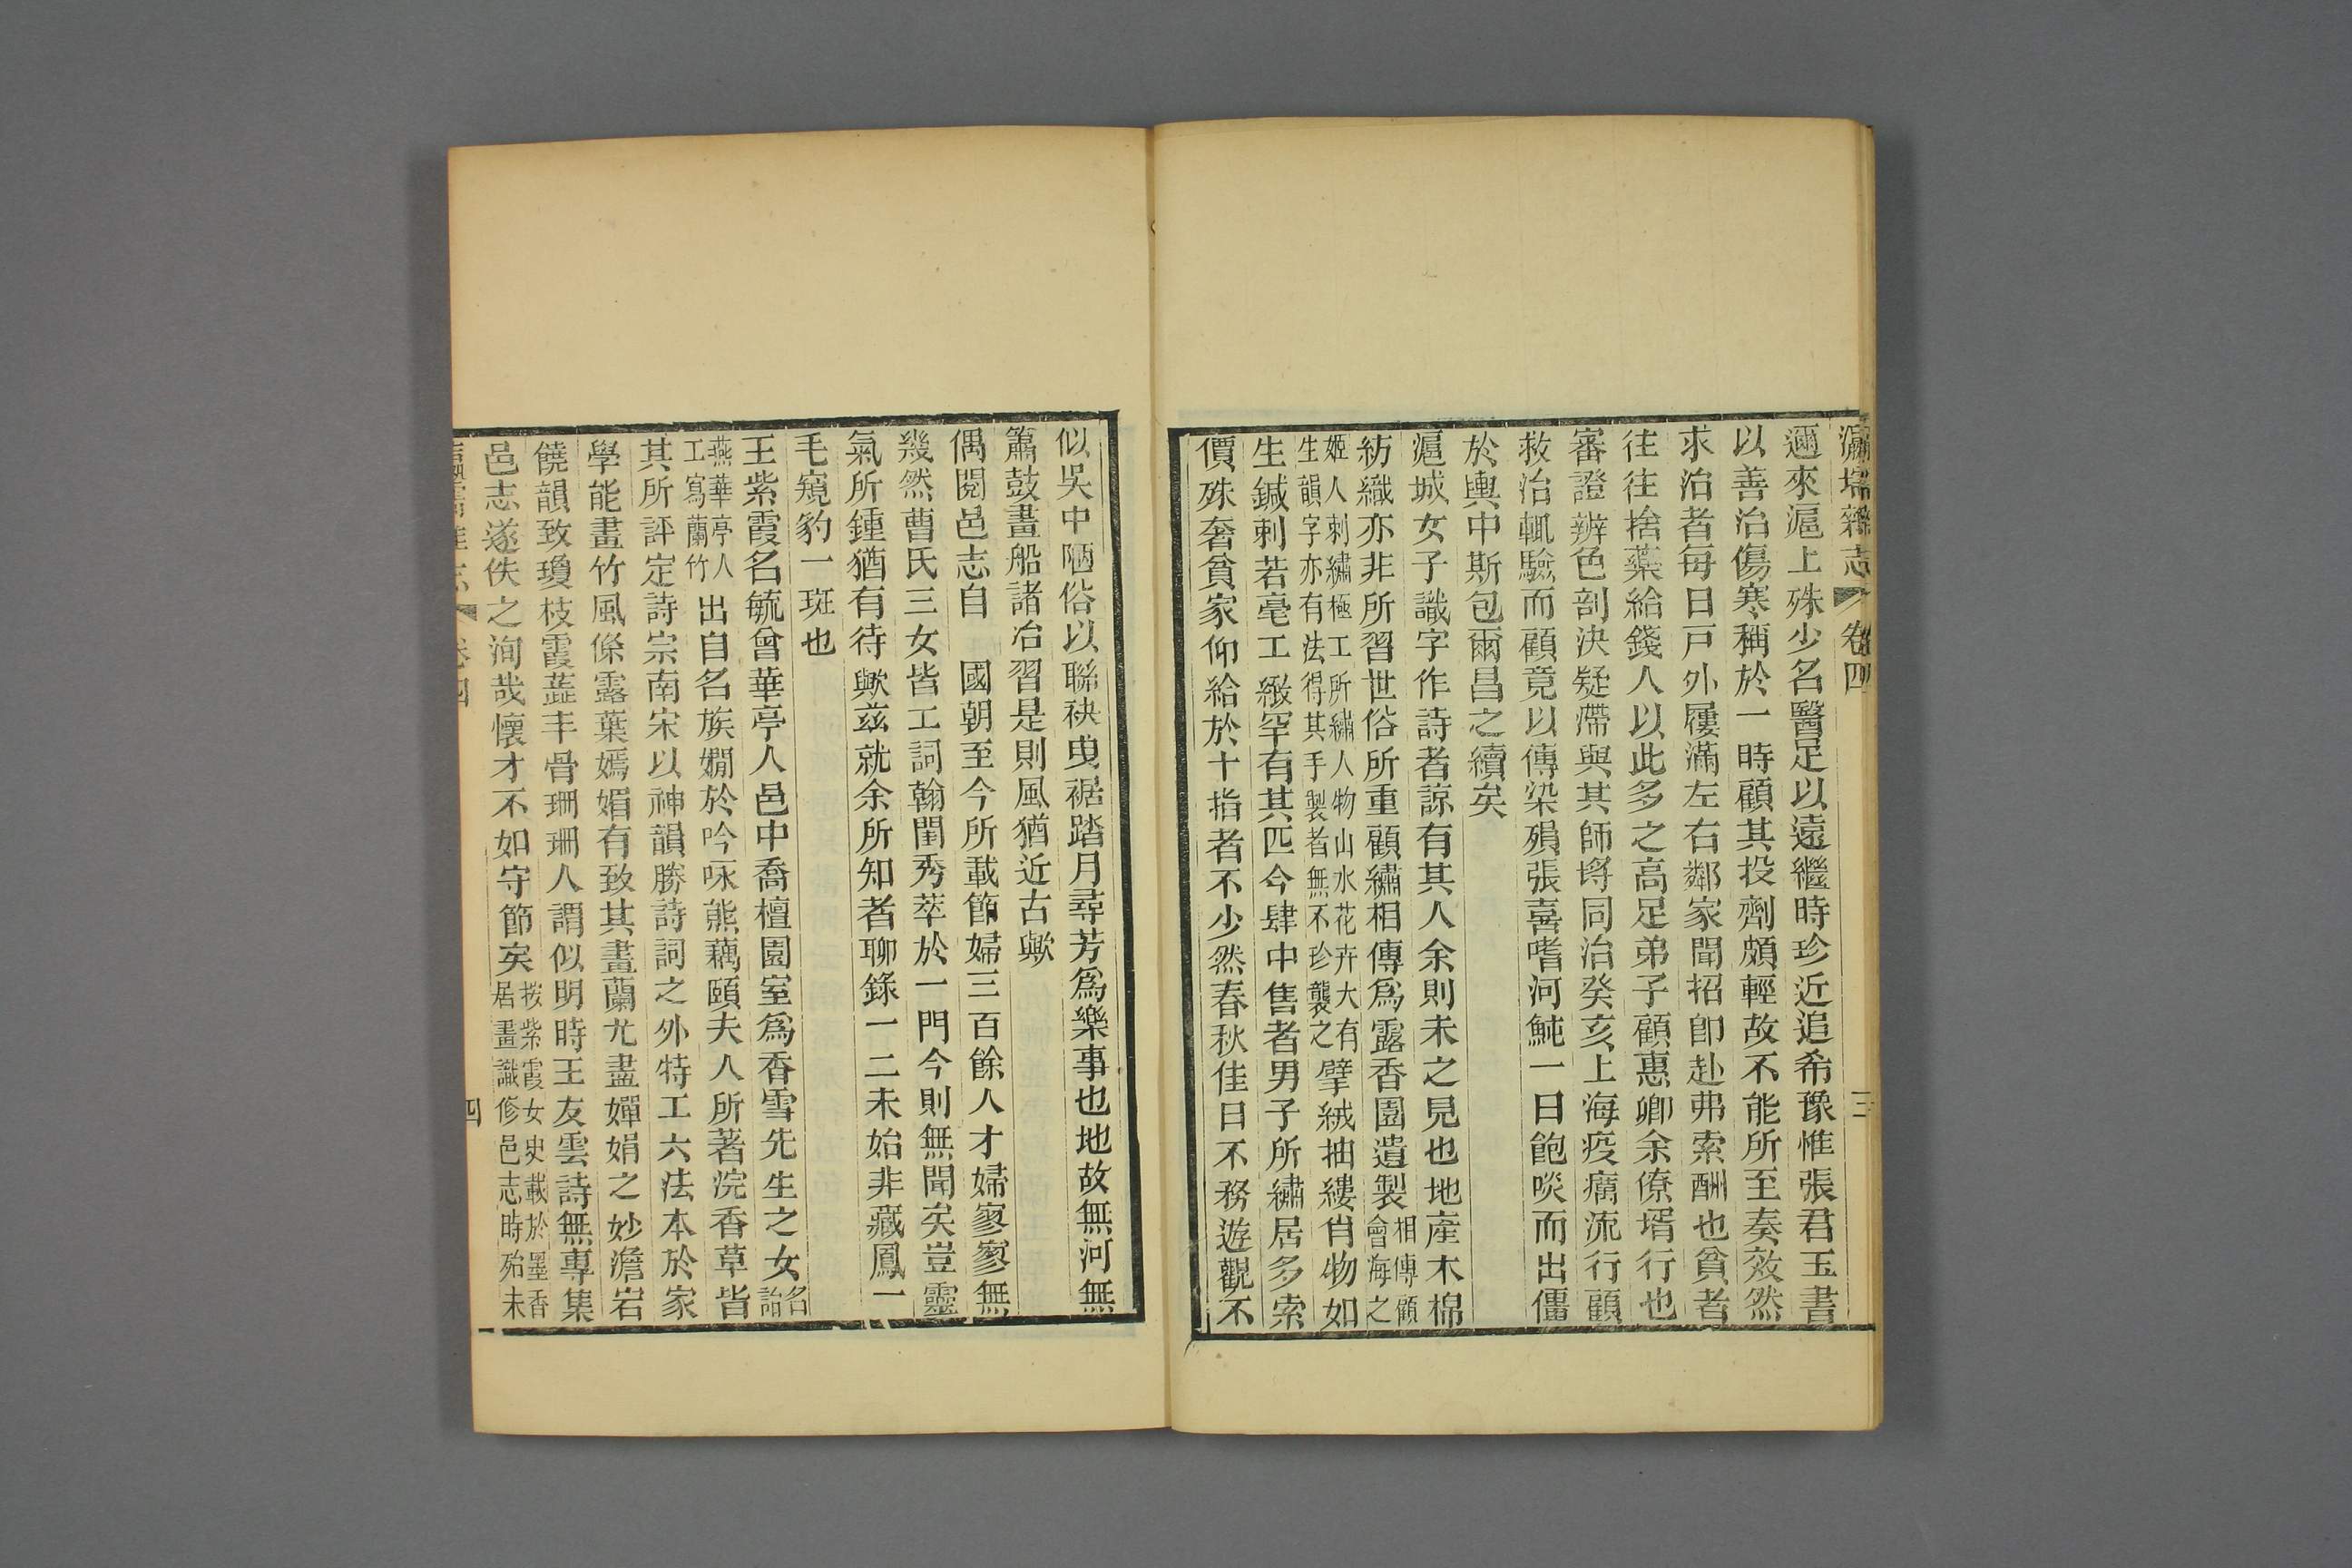 瀛壖雜志 卷四 三
邇來滬上殊少名醫足以遠繼時珍近追希豫惟張君玉書
以善治傷寒稱於一時顧其投劑頗輕故不能所至奏效然
求治者每日戶外屨滿左右鄰家聞招卽赴弗索酬也貧者
往往捨藥給錢人以此多之高足弟子顧惠卿余僚壻行也
審證辨色剖決疑滯與其師埒同治癸亥上海疫癘流行顧
救治輒驗而顧竟以傳染殞張喜嗜河魨一日飽啖而出僵
於輿中斯包爾昌之續矣
滬城女子識字作詩者諒有其人余則未之見也地產木棉
紡織亦非所習世俗所重顧繡相傳爲露香園遺製相傳顧會海之
姬人刺繡極工所繡人物山水花卉大有生韻字亦有法得其手製者無不珍襲之擘絨抽縷肖物如
生鍼刺若毫工緻罕有其匹今肆中售者男子所繡居多索
價殊奢貧家仰給於十指者不少然春秋佳日不務遊觀不
似吳中陋俗以聯袂曳裾踏月尋芳爲樂事也地故無河無
簫鼓畫船諸冶習是則風猶近古歟
偶閱邑志自 國朝至今所載節婦三百餘人才婦寥寥無
幾然曹氏三女皆工詞翰閨秀萃於一門今則無聞矣豈靈
氣所鍾猶有待歟茲就余所知者聊錄一二未始非藏鳳一
毛窺豹一斑也
王紫霞名毓曾華亭人邑中喬檀園室爲香雪先生之女名詒
燕華亭人工寫蘭竹出自名族嫺於吟咏熊藕頤夫人所著浣香草皆
其所評定詩宗南宋以神韻勝詩詞之外特工六法本於家
學能畫竹風條露葉嫣媚有致其畫蘭尤盡嬋娟之妙澹宕
饒韻致瓊枝霞蘂丰骨珊珊人謂似明時王友雲詩無專集
邑志遂佚之洵哉懷才不如守節矣按紫霞女史載於墨香居畫識修邑志時殆未
卷四 四